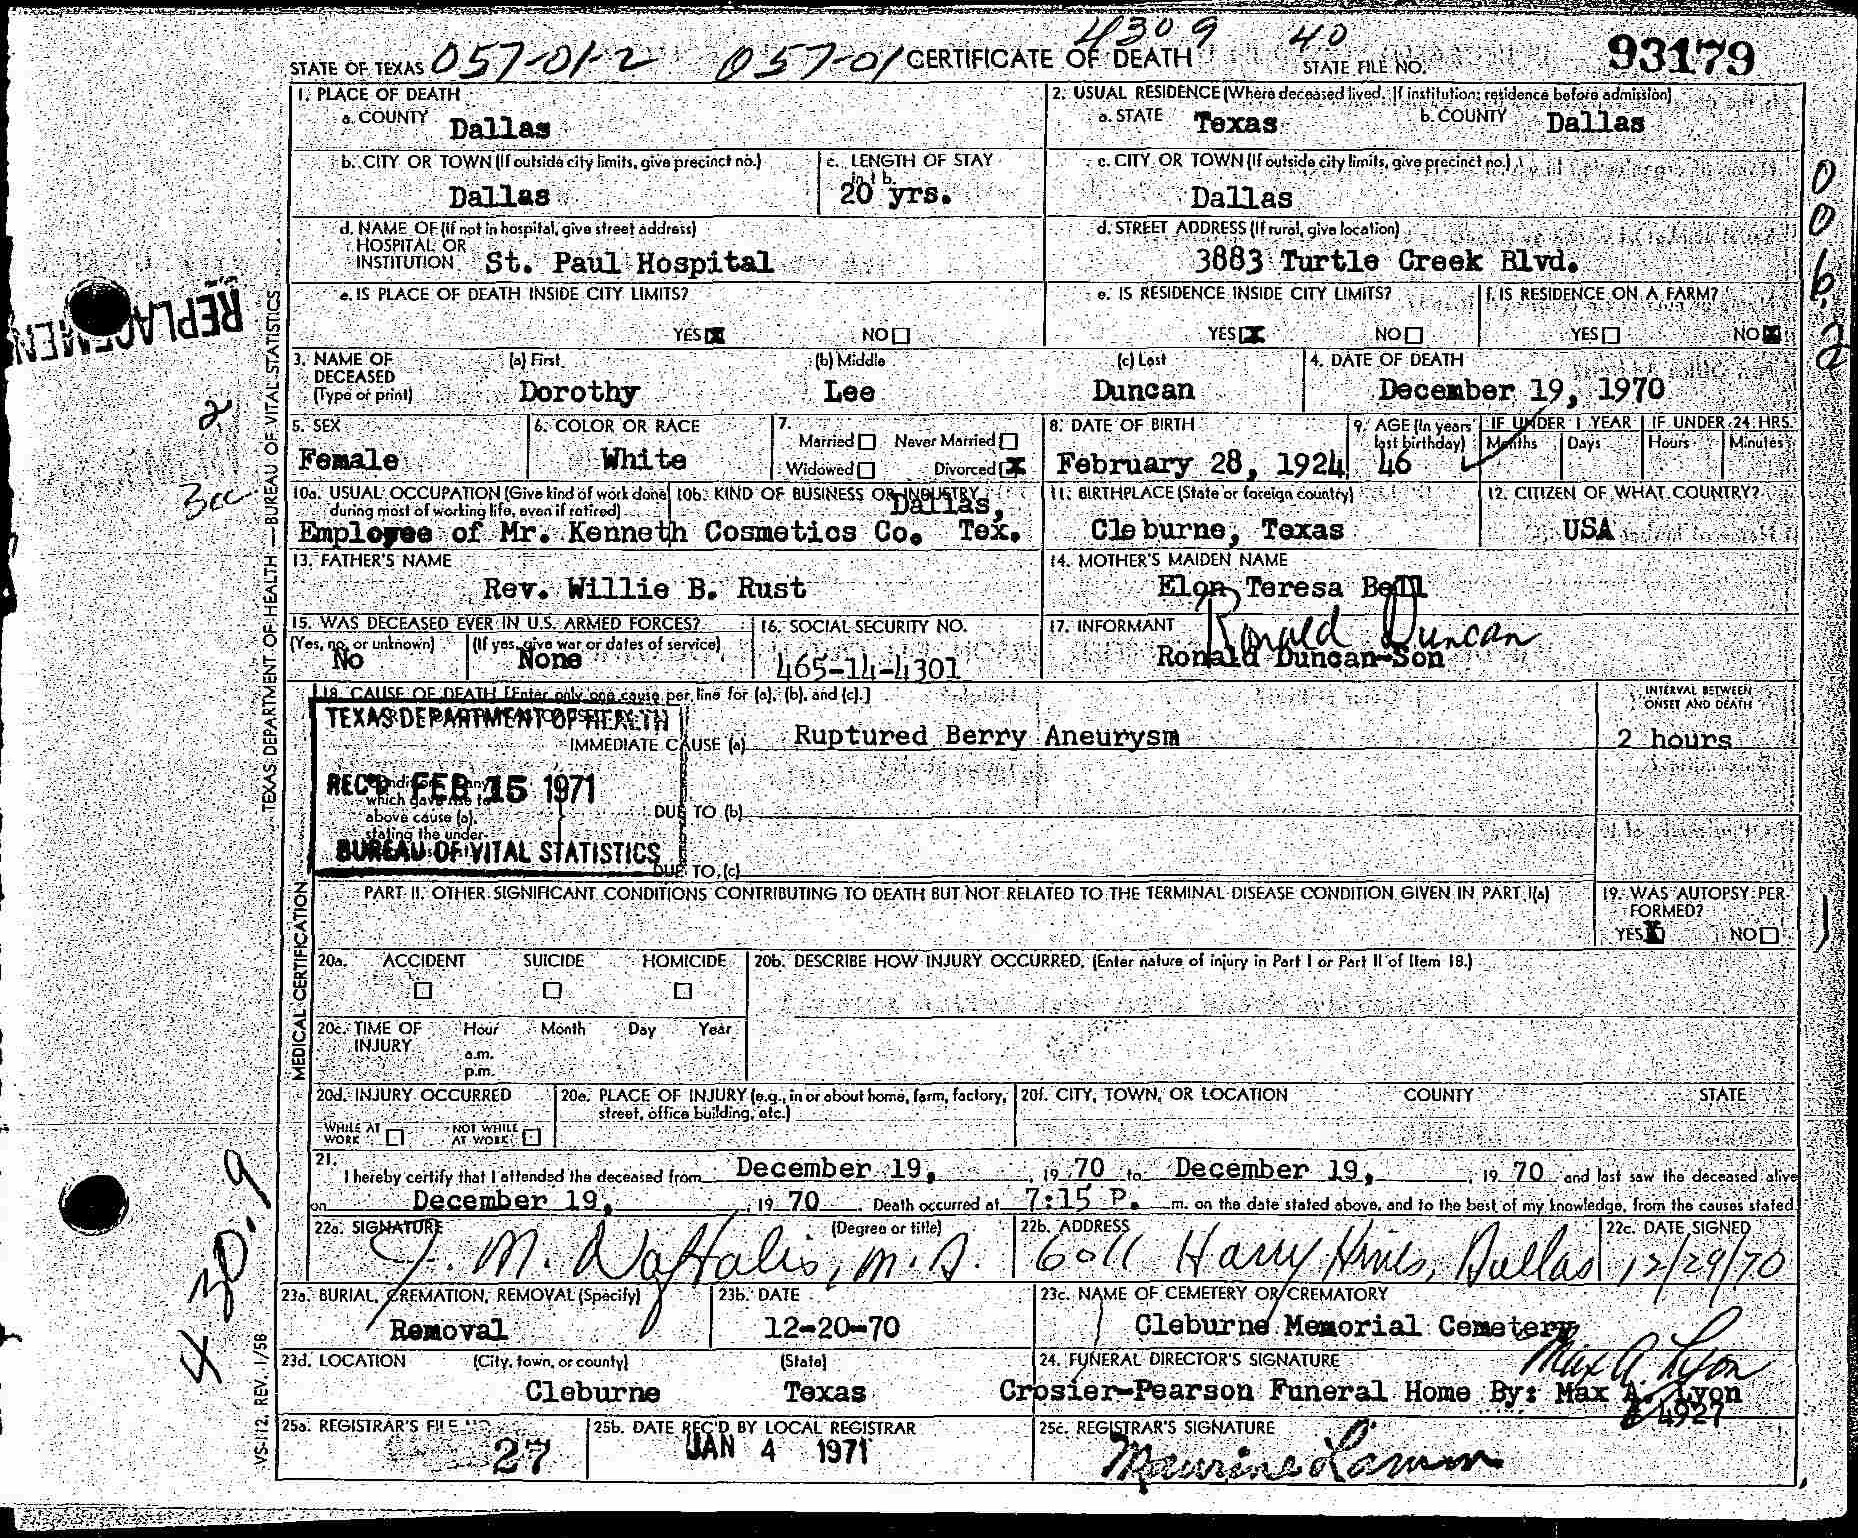 4309 40
STATE OF TEXAS 057-01-2 057-01 CERTIFICATE OF DEATH STATE FILE NO. 93179
1. PLACE OF DEATH
a. COUNTY Dallas
2. USUAL RESIDENCE (Where deceased lived. If institution: residence before admission)
a. STATE Texas b. COUNTY Dallas
b. CITY OR TOWN (If outside city limits, give precinct no.)
Dallas
c. LENGTH OF STAY
in 1 b.
20 yrs.
c. CITY OR TOWN (If outside city limits, give precinct no.)
Dallas
d. NAME OF (If not in hospital, give street address)
HOSPITAL OR
INSTITUTION St. Paul Hospital
d. STREET ADDRESS (If rural, give location)
3883 Turtle Creek Blvd.
e. IS PLACE OF DEATH INSIDE CITY LIMITS?
YES X NO
e. IS RESIDENCE INSIDE CITY LIMITS?
YES X NO
f. IS RESIDENCE ON A FARM?
YES NO X
0
0
6
2
1
REPLACEMEN
2
3cc
TEXAS DEPARTMENT OF HEALTH — BUREAU OF VITAL STATISTICS
3. NAME OF
DECEASED
(Type or print)
(a) First (b) Middle (c) Last
Dorothy Lee Duncan
4. DATE OF DEATH
December 19, 1970
5. SEX
Female
6. COLOR OR RACE
White
7.
Married Never Married
Widowed Divorced X
8. DATE OF BIRTH
February 28, 1924
9. AGE (In years
last birthday)
46
IF UNDER 1 YEAR IF UNDER 24 HRS.
Months Days Hours Minutes
10a. USUAL OCCUPATION (Give kind of work done
during most of working life, even if retired)
10b. KIND OF BUSINESS OR INDUSTRY
Dallas,
Employee of Mr. Kenneth Cosmetics Co. Tex.
11. BIRTHPLACE (State or foreign country)
Cleburne, Texas
12. CITIZEN OF WHAT COUNTRY?
USA
13. FATHER'S NAME
Rev. Willie B. Rust
14. MOTHER'S MAIDEN NAME
Elon Teresa Bell
15. WAS DECEASED EVER IN U.S. ARMED FORCES?
(Yes, no, or unknown) (If yes, give war or dates of service)
No None
16. SOCIAL SECURITY NO.
465-14-4301
17. INFORMANT Ronald Duncan
Ronald Duncan-Son
18. CAUSE OF DEATH [Enter only one cause per line for (a), (b), and (c).]
INTERVAL BETWEEN
ONSET AND DEATH
TEXAS DEPARTMENT OF HEALTH
IMMEDIATE CAUSE (a) Ruptured Berry Aneurysm 2 hours
REC'D FEB 15 1971
which gave rise to
above cause (a),
stating the under-
DUE TO (b)
BUREAU OF VITAL STATISTICS
DUE TO (c)
MEDICAL CERTIFICATION
PART II. OTHER SIGNIFICANT CONDITIONS CONTRIBUTING TO DEATH BUT NOT RELATED TO THE TERMINAL DISEASE CONDITION GIVEN IN PART I(a)
19. WAS AUTOPSY PER-
FORMED?
YES X NO
20a. ACCIDENT SUICIDE HOMICIDE
20b. DESCRIBE HOW INJURY OCCURRED. (Enter nature of injury in Part I or Part II of Item 18.)
20c. TIME OF
INJURY
Hour Month Day Year
a.m.
p.m.
20d. INJURY OCCURRED
WHILE AT
WORK
NOT WHILE
AT WORK
20e. PLACE OF INJURY (e.g., in or about home, farm, factory,
street, office building, etc.)
20f. CITY, TOWN, OR LOCATION COUNTY STATE
21.
I hereby certify that I attended the deceased from December 19, 19 70 to December 19, 19 70 and last saw the deceased alive
on December 19, 19 70. Death occurred at 7:15 P. m. on the date stated above, and to the best of my knowledge, from the causes stated.
22a. SIGNATURE (Degree or title)
J. M. Naftalis, M.D.
22b. ADDRESS
6011 Harry Hines, Dallas
22c. DATE SIGNED
12/29/70
430.9
23a. BURIAL, CREMATION, REMOVAL (Specify)
Removal
23b. DATE
12-20-70
23c. NAME OF CEMETERY OR CREMATORY
Cleburne Memorial Cemetery
23d. LOCATION (City, town, or county) (State)
Cleburne Texas
24. FUNERAL DIRECTOR'S SIGNATURE Max A. Lyon
Crosier-Pearson Funeral Home By: Max A. Lyon
4927
25a. REGISTRAR'S FILE NO.
27
25b. DATE REC'D BY LOCAL REGISTRAR
JAN 4 1971
25c. REGISTRAR'S SIGNATURE
Maurine Lamm
VS-112, REV. 1/58